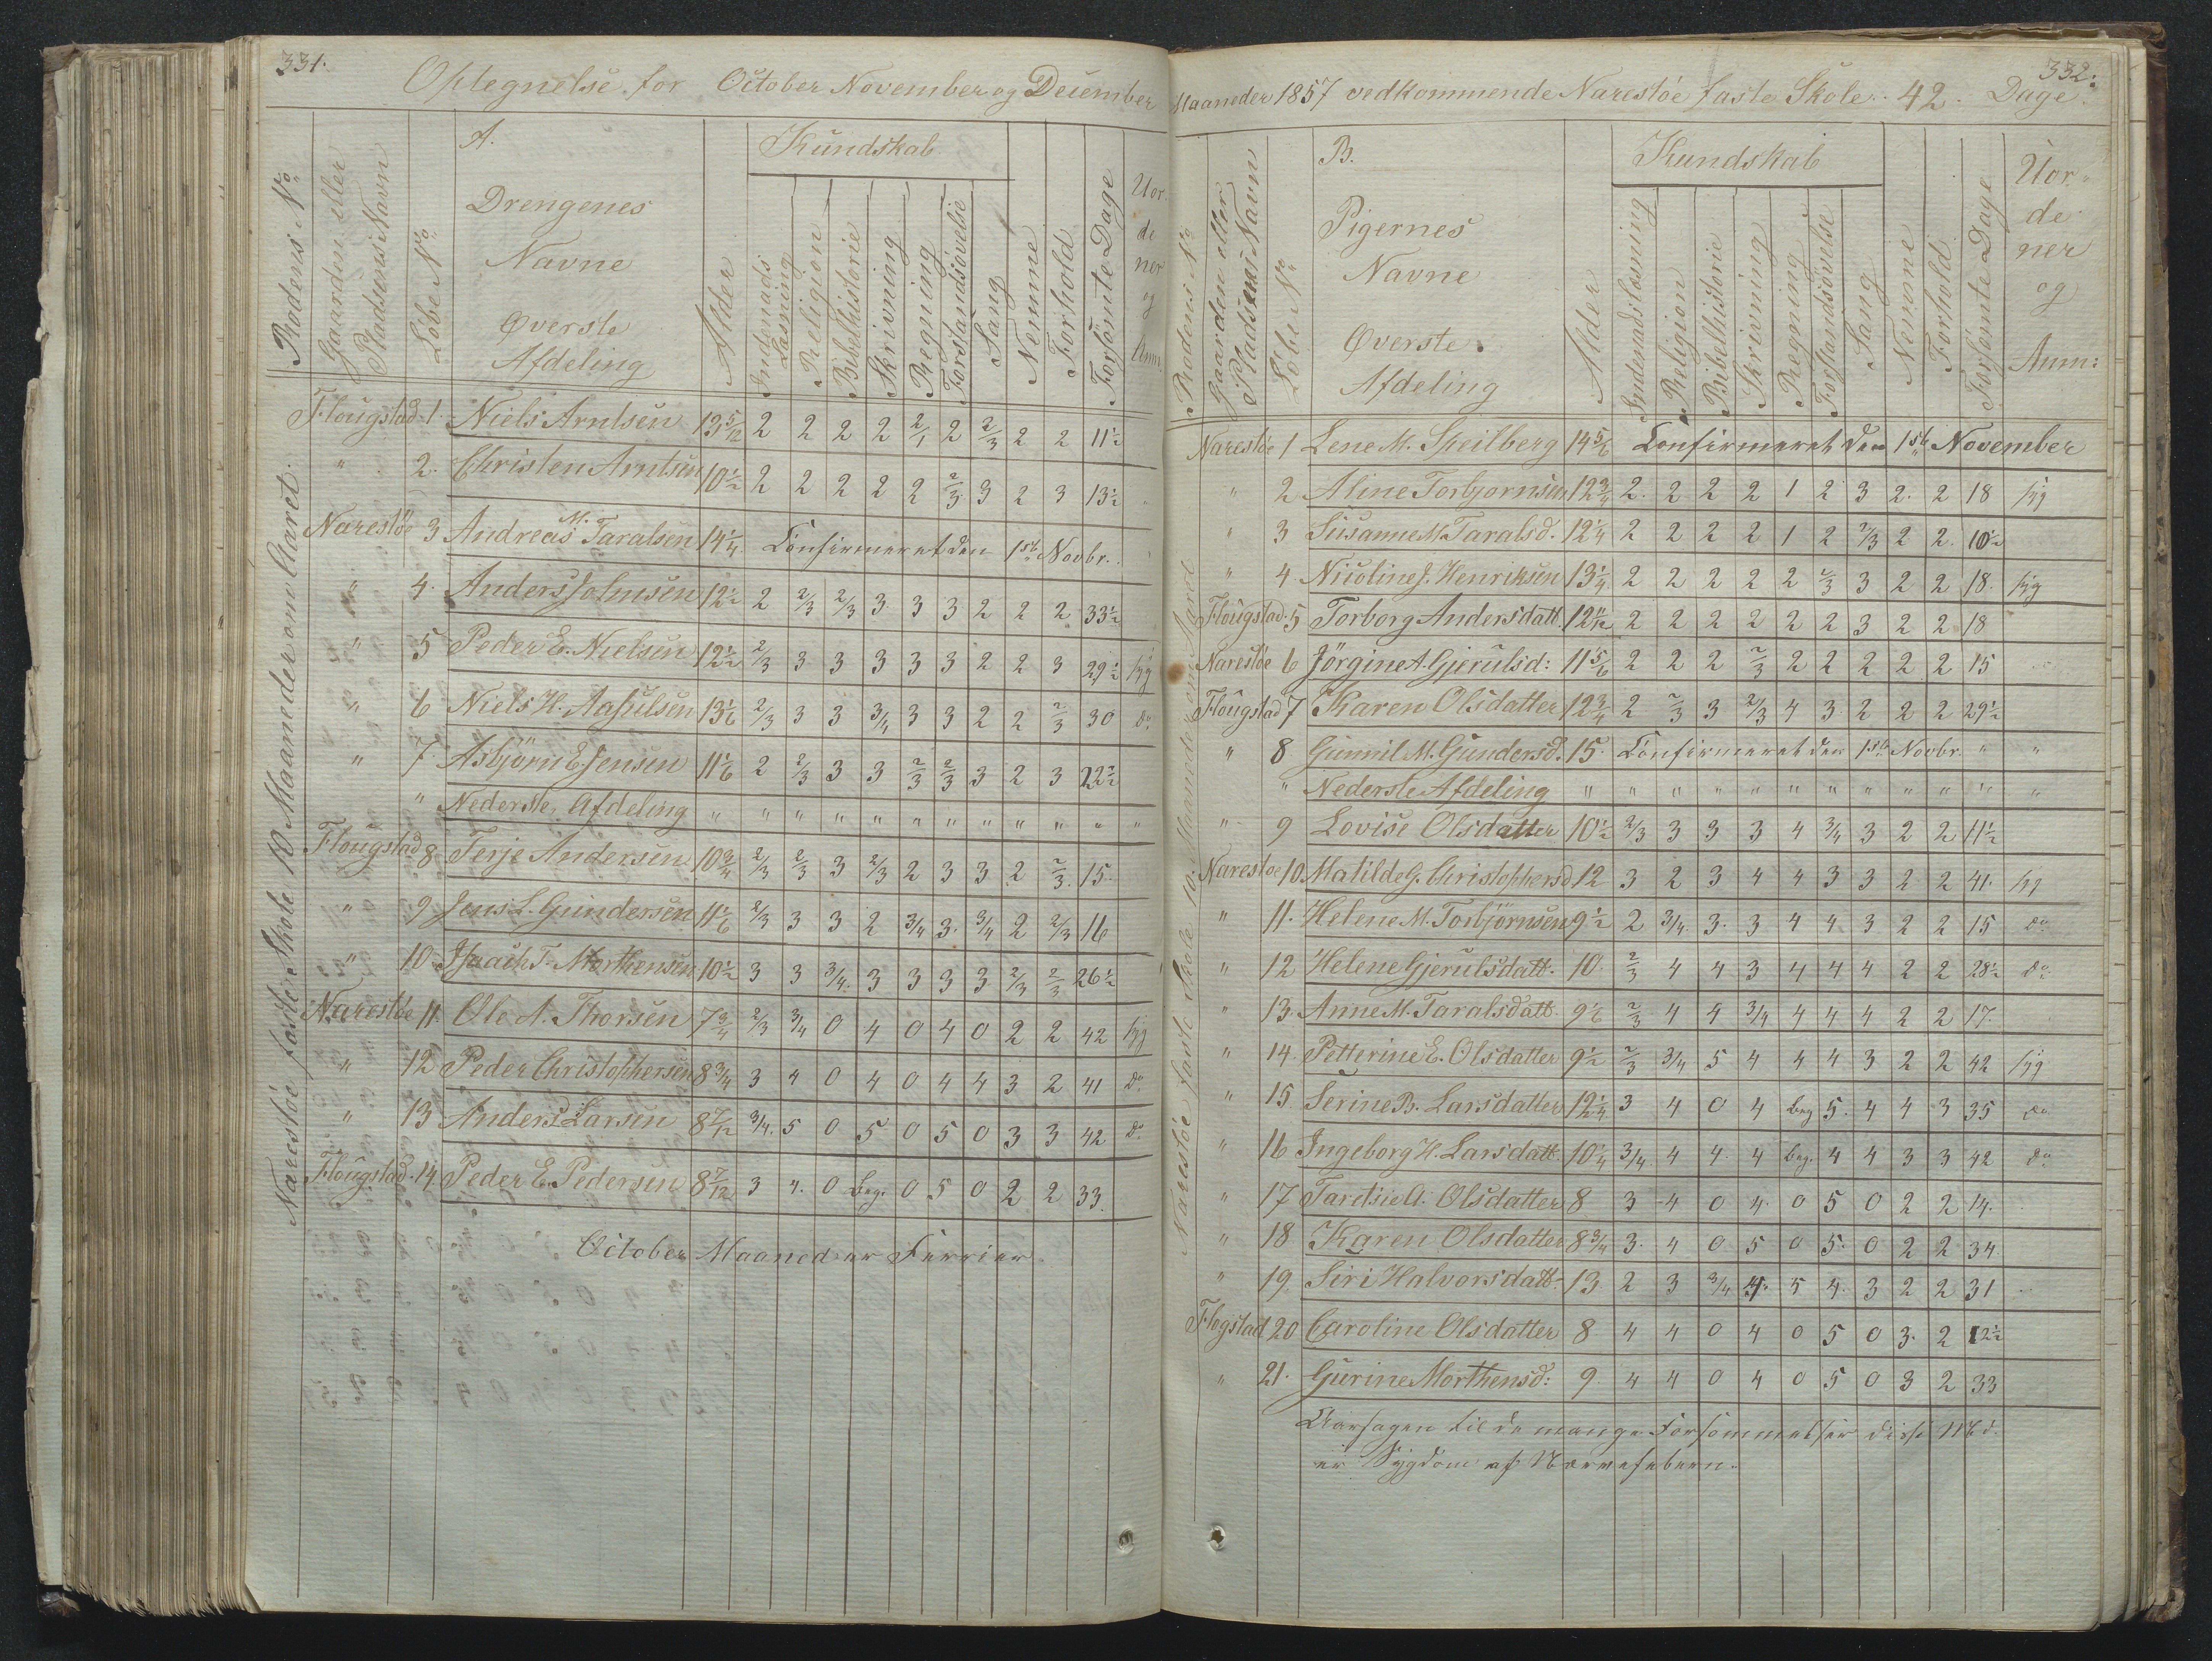 331.
Optegnelse for October November og December
Rodens No
Gaarden eller
Pladsens Navn
Löbe No
A.
Drengenes
Navne
Øverste
Afdeling
Alder
Kundskab
Indenads
Læsning
Religion
Bibelhistorie
Skrivning
Regning
Forstandsövelse
Sang
Nemme
Forhold
Forsömte Dage
Uor
de
ner
og
Anm.
Narestöe faste Skole 10 Maaneder om Aaret.
Flougstad 1 Niels Arntsen 13 5/12 2 2 2 2 2/1 2 2/3 2 2 11 1/2
" 2. Christen Arntsen 10 1/2 2 2 2 2 2 2/3 3 2 3 13 1/2
Narestöe 3 Andreas M. Taralsen 14 1/4 Confirmeret den 1ste Novbr.
" 4. Anders Johnsen 12 1/2 2 2/3 2/3 3 3 3 2 2 2 33 1/2
" 5 Peder E. Nielsen 12 1/2 2/3 3 3 3 3 3 2 2 3 29 1/2 syg
" 6 Niels H. Aasulsen 13 1/6 2/3 3 3 3/4 3 3 2 2 2/3 30 do
" 7 Asbjörn E. Jensen 11 1/6 2 2/3 3 3 2/3 2/3 3 2 3 22 1/2
" Nederste Afdeling " " " " " " " " " " " "
Flougstad 8 Terje Andersen 10 3/4 2/3 2/3 3 2/3 2 3 3 2 2/3 15
" 9 Jens L. Gundersen 11 1/6 2/3 3 3 2 3/4 3 3/4 2 2/3 16
" 10 Isaach T. Morthensen 10 1/2 3 3 3/4 3 3 3 3 2/3 2/3 26 1/2
Narestöe 11 Ole A. Thorsen 7 3/4 2/3 3/4 0 4 0 4 0 2 2 42 syg
" 12 Peder Christophersen 8 3/4 3 4 0 4 0 4 4 3 2 41 do
" 13 Anders Larsen 8 7/12 3/4 5 0 5 0 5 0 3 3 42 do
Flougstad 14 Peder E. Pedersen 8 7/12 3 4 0 Beg. 0 5 0 2 2 33
October Maaned er Ferrier
332.
Maaneder 1857 vedkommende Narestöe faste Skole. 42. Dage.
Rodens No
Gaarden eller
Pladsens Navn
Löbe No
B.
Pigernes
Navne
Øverste
Afdeling
Alder
Kundskab
Indenadslæsning
Religion
Bibelhistorie
Skrivning
Regning
Forstandsövelse
Sang
Nemme
Forhold
Forsömte Dage
Uor-
de
ner
og
Anm:
Narestöe faste Skole 10 Maaneder om Aaret
Narestöe 1 Lene M. Speilberg 14 5/6 Confirmeret den 1ste November
" 2 Aline Torbjornsen 12 3/4 2 2 2 2 1 2 3 2 2 18 syg
" 3 Susanne M. Taralsd. 12 1/4 2 2 2 2 1 2 2/3 2 2 10 1/2
" 4 Nicoline J. Henriksen 13 1/4 2 2 2 2 2 2/3 3 2 2 18 syg
Flougstad 5 Torborg Andersdatt. 12 11/12 2 2 2 2 2 2 3 2 2 18
Narestöe 6 Jörgine A. Gjerulsd: 11 5/6 2 2 2 2/3 2 2 2 2 2 15
Flougstad 7 Karen Olsdatter 12 3/4 2 2/3 3 2/3 4 3 2 2 2 29 1/2
" 8 Gunnil M. Gundersd. 15. Confirmeret den 1ste Novbr. " "
" Nederste Afdeling " " " " " " " " " " " "
" 9 Lovise Olsdatter 10 1/2 2/3 3 3 3 4 3/4 3 2 2 11 1/2
Narestöe 10 Matilde G. Christophersd 12 3 2 3 4 4 3 3 2 2 41 syg
" 11. Helene M. Torbjörnsen 9 1/2 2 3/4 3 3 4 4 3 2 2 15 do
" 12 Helene Gjerulsdatt. 10 2/3 4 4 3 4 4 4 2 2 28 1/2 do
" 13. Anne M. Taralsdatt. 9 1/6 2/3 4 4 3/4 4 4 4 2 2 17
" 14. Petterine E. Olsdatter 9 1/2 2/3 3/4 5 4 4 4 3 2 2 42 syg
" 15 Serine B. Larsdatter 12 1/4 3 4 0 4 Beg 5 4 4 3 35 do
" 16 Ingeborg H. Larsdatt 10 1/4 3/4 4 4 4 Beg. 4 4 3 3 42 do
" 17 A. Olsdatter 8 3 4 0 4 0 5 0 2 2 14
" 18 Karen Olsdatter 8 3/4 3 4 0 5 0 5 0 2 2 34
" 19. Siri Halvorsdatt 13 2 3 3/4 4 5 4 3 2 2 31
Flogstad 20 Caroline Olsdatter 8 4 4 0 4 0 5 0 3 2 12 1/2
" 21. Gurine Morthensd: 9 4 4 0 4 0 5 0 3 2 33
Aarsagen til de mange Forsömmelser disse
er Sygdom af Nervefebern.